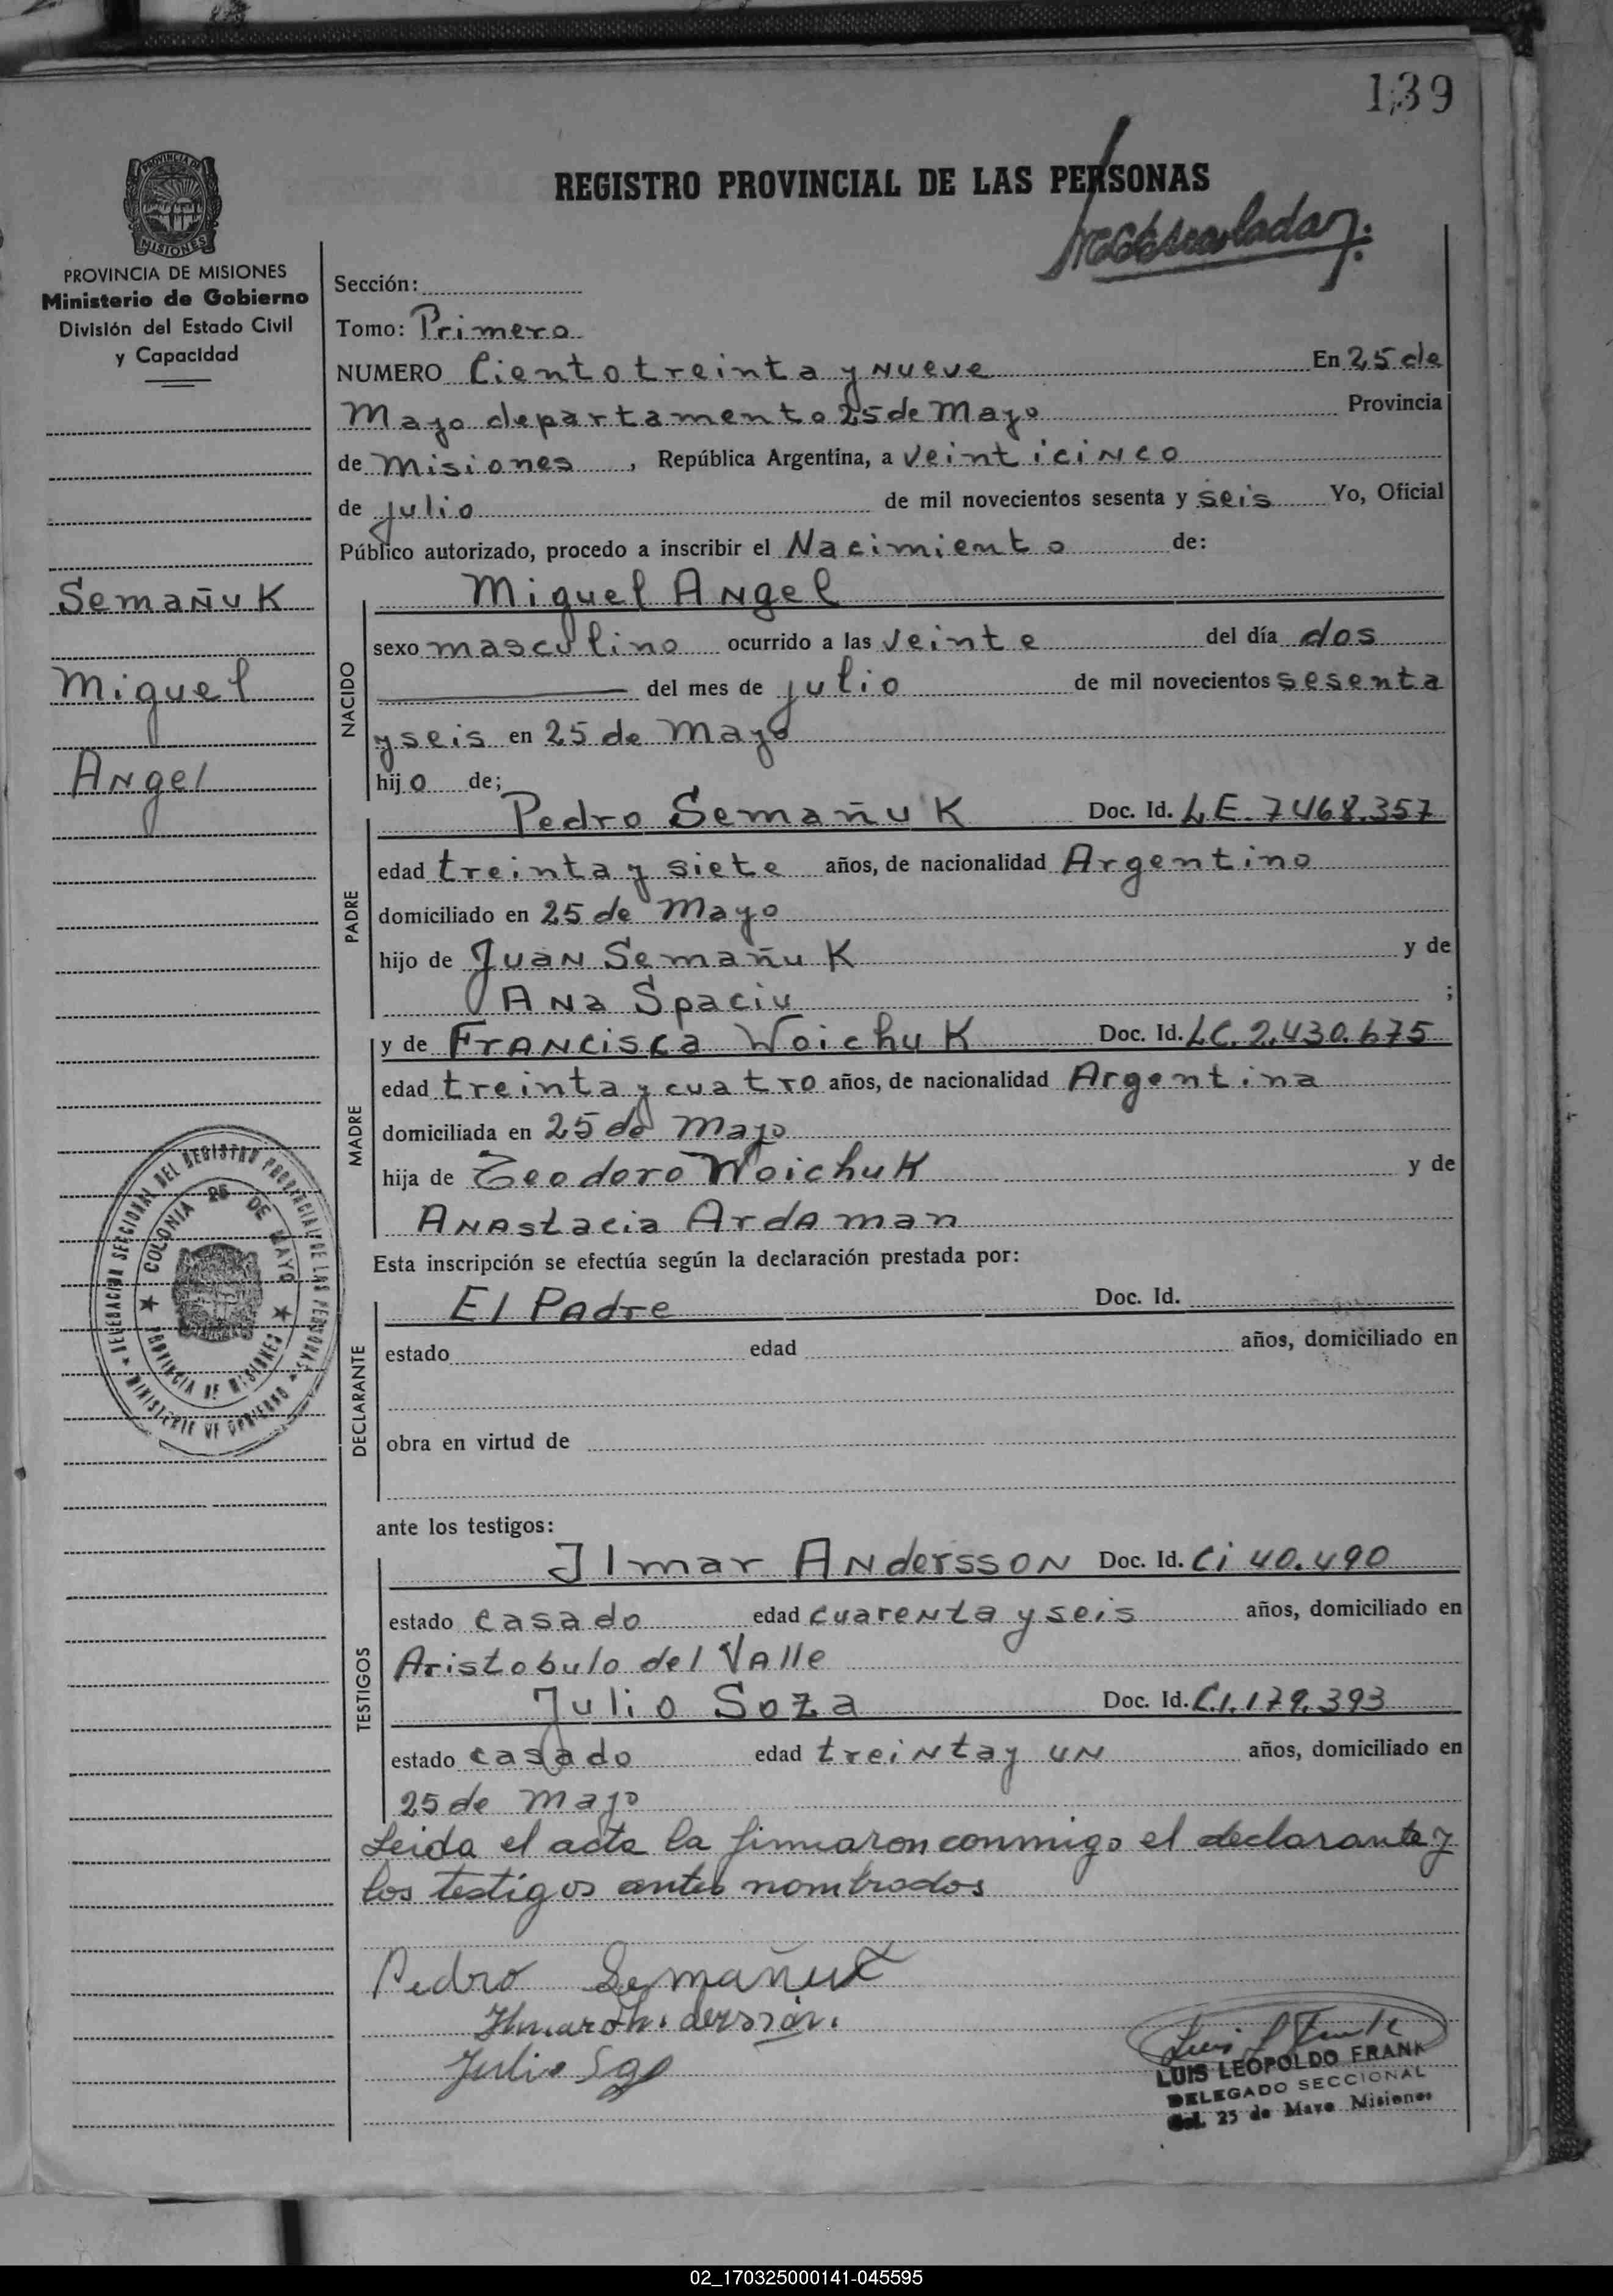 139
REGISTRO PROVINCIAL DE LAS PERSONAS
PROVINCIA DE MISIONES
MISIONES
PROVINCIA DE MISIONES
Ministerio de Gobierno
División del Estado Civil
y Capacidad
Semañuk
Miguel
Angel
DELEGACION SECCIONAL DEL REGISTRO PROVINCIAL DE LAS PERSONAS
MINISTERIO DE GOBIERNO
COLONIA 25 DE MAYO
PROVINCIA DE MISIONES
Sección:
Tomo: Primero
NUMERO Ciento treinta y nueve En 25 de
Mayo departamento 25 de Mayo Provincia
de Misiones, República Argentina, a veinticinco
de julio de mil novecientos sesenta y seis Yo, Oficial
Público autorizado, procedo a inscribir el Nacimiento de:
Miguel Angel
NACIDO
sexo masculino ocurrido a las veinte del día dos
del mes de julio de mil novecientos sesenta
y seis en 25 de Mayo
hijo de;
PADRE
Pedro Semañuk Doc. Id. L.E. 7468.357
edad treinta y siete años, de nacionalidad Argentino
domiciliado en 25 de Mayo
hijo de Juan Semañuk y de
Ana Spaciu ;
MADRE
y de Francisca Woichuk Doc. Id. L.C. 2.430.675
edad treinta y cuatro años, de nacionalidad Argentina
domiciliada en 25 de Mayo
hija de Teodoro Woichuk y de
Anastacia Ardaman
Esta inscripción se efectúa según la declaración prestada por:
DECLARANTE
El Padre Doc. Id.
estado edad años, domiciliado en
obra en virtud de
ante los testigos:
TESTIGOS
Ilmar Andersson Doc. Id. Ci 40.490
estado casado edad cuarenta y seis años, domiciliado en
Aristobulo del Valle
Julio Soza Doc. Id. C.I. 179.393
estado casado edad treinta y un años, domiciliado en
25 de Mayo
Leida el acta la firmaron conmigo el declarante y
los testigos antes nombrados
Pedro Semañuk
Julio
LUIS LEOPOLDO FRANK
DELEGADO SECCIONAL
Col. 25 de Mayo Misiones
02_170325000141-045595